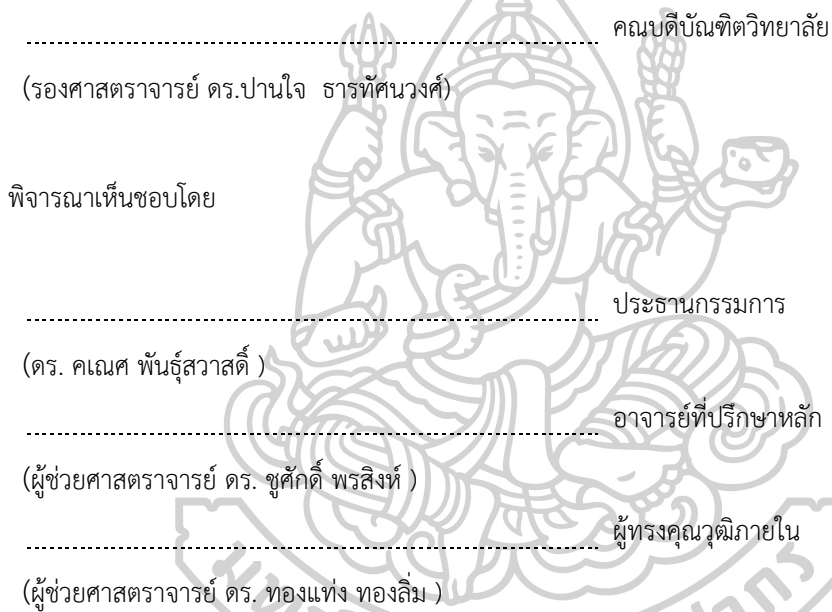 คณบดีบัณฑิตวิทยาลัย
(รองศาสตราจารย์ ดร.ปานใจ ธารทัศนวงศ์)
พิจารณาเห็นชอบโดย
ประธานกรรมการ
(ดร. คเณศ พันธุ์สวาสดิ์ )
อาจารย์ที่ปรึกษาหลัก
(ผู้ช่วยศาสตราจารย์ ดร. ชูศักดิ์ พรสิงห์ )
ผู้ทรงคุณวุฒิภายใน
(ผู้ช่วยศาสตราจารย์ ดร. ทองแท่ง ทองลิ่ม )